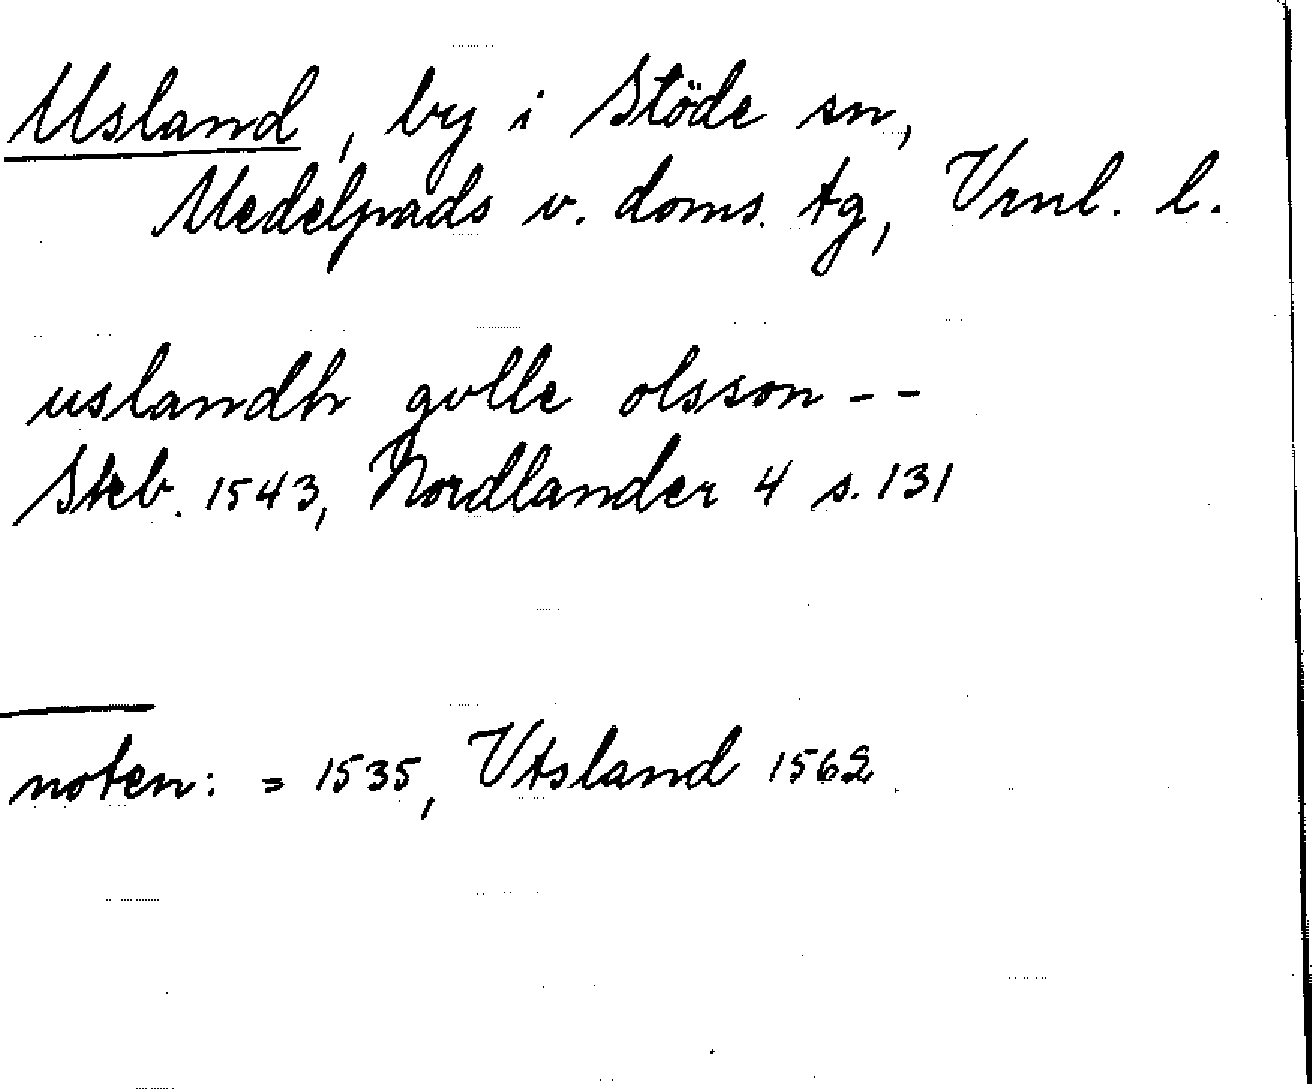 Usland, by i Stöde sn,
Medelpads v. doms. tg, Vrnl. l.
uslandh gulle olsson - -
Skb. 1543, Nordlander 4 s. 131
noten: = 1535, Vtsland 1562